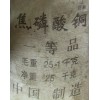 焦磷酸铜
一等品
毛重 25.1 千克
净重 25 千克
中国制造